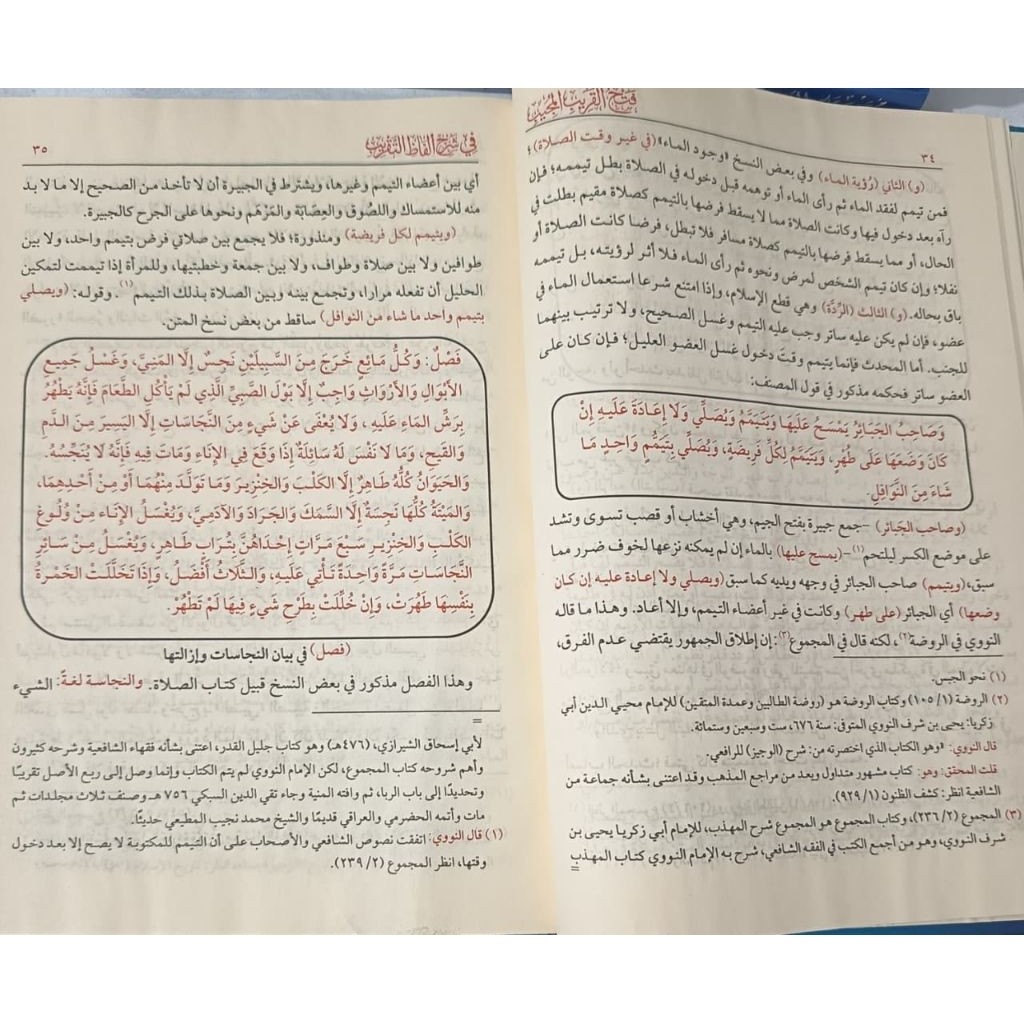 فتح القريب المجيب
٣٤
(و) الثاني (رُؤية الماء) وفي بعض النسخ «وجود الماء» (في غير وقت الصلاة)؛
فمن تيمم لفقد الماء ثم رأى الماء أو توهمه قبل دخوله في الصلاة بطل تيممه؛ فإن
رآه بعد دخول فيها وكانت الصلاة مما لا يسقط فرضها بالتيمم كصلاة مقيم بطلت في
الحال، أو مما يسقط فرضها بالتيمم كصلاة مسافر فلا تبطل، فرضا كانت الصلاة أو
نفلا؛ وإن كان تيمم الشخص لمرض ونحوه ثم رأى الماء فلا أثر لرؤيته، بل تيممه
باق بحاله. (و) الثالث (الرِّدَّة) وهي قطع الإسلام، وإذا امتنع شرعا استعمال الماء في
عضو، فإن لم يكن عليه ساتر وجب عليه التيمم وغسل الصحيح، ولا ترتيب بينهما
للجنب. أما المحدث فانما يتيمم وقت دخول غسل العضو العليل؛ فإن كان على
العضو ساتر فحكمه مذكور في قول المصنف:
وَصَاحِبُ الجَبَائِرُ يَمْسَحُ عَلَيهَا وَيَتَيَمَّمُ وَيُصَلِّي وَلَا إِعَادَةَ عَلَيهِ إِنْ
كَانَ وَضَعَهَا عَلَى طُهْرٍ، وَيَتَيَمَّمُ لِكُلِّ فَرِيضَةٍ، وَيُصَلِّي بِتَيَمُّمٍ وَاحِدٍ مَا
شَاءَ مِنَ النَّوَافِلِ.
(وصاحب الجَبَائر) -جمع جبيرة بفتح الجيم، وهي أخشاب أو قصب تسوى وتشد
على موضع الكسر ليلتحم(١)- (يمسح عليها) بالماء إن لم يمكنه نزعها لخوف ضرر مما
سبق، (ويتيمم) صاحب الجبائر في وجهه ويديه كما سبق (ويصلي ولا إعادة عليه إن كان
وضعها) أي الجبائر (على طهر) وكانت في غير أعضاء التيمم، وإلا أعاد. وهذا ما قاله
النووي في الروضة(٢)، لكنه قال في المجموع(٣): إن إطلاق الجمهور يقتضي عدم الفرق،
(١) نحو الجبس.
(٢) الروضة (١/ ١٠٥) وكتاب الروضة هو (روضة الطالبين وعمدة المتقين) للإمام محيي الدين أبي
زكريا: يحيى بن شرف النووي المتوفى: سنة ٦٧٦، ست وسبعين وستمائة.
قال النووي: «وهو الكتاب الذي اختصرته من: شرح (الوجيز) للرافعي.
قلت المحقق: وهو: كتاب مشهور متداول ويعد من مراجع المذهب وقد اعتنى بشأنه جماعة من
الشافعية انظر: كشف الظنون (١/ ٩٢٩).
(٣) المجموع (٢/ ٢٣٦)، وكتاب المجموع هو المجموع شرح المهذب، للإمام أبي زكريا يحيى بن
شرف النووي، وهو من أجمع الكتب في الفقه الشافعي، شرح به الإمام النووي كتاب المهذب
=
في شرح ألفاظ التقريب
٣٥
أي بين أعضاء التيمم وغيرها، ويشترط في الجبيرة أن لا تأخذ من الصحيح إلا ما لا بد
منه للاستمساك واللصُوق والعِصَابَة والمَرْهَم ونحوها على الجرح كالجبيرة.
(ويتيمم لكل فريضة) ومنذورة؛ فلا يجمع بين صلاتي فرض بتيمم واحد، ولا بين
طوافين ولا بين صلاة وطواف، ولا بين جمعة وخطبتيها، وللمرأة إذا تيممت لتمكين
الحليل أن تفعله مرارا، وتجمع بينه وبين الصلاة بذلك التيمم(١). وقوله: (ويصلي
بتيمم واحد ما شاء من النوافل) ساقط من بعض نسخ المتن.
فَصْلٌ: وَكُلُّ مَائِعٍ خَرَجَ مِنَ السَّبِيلَيْنِ نَجِسٌ إِلَّا المَنِيَّ، وَغَسْلُ جَمِيعِ
الأَبْوَالِ وَالأَرْوَاثِ وَاجِبٌ إِلَّا بَوْلَ الصَّبِيِّ الَّذِي لَمْ يَأْكُلِ الطَّعَامَ فَإِنَّهُ يَطْهُرُ
بِرَشِّ المَاءِ عَلَيهِ، وَلَا يُعْفَى عَنْ شَيءٍ مِنَ النَّجَاسَاتِ إِلَّا اليَسِيرَ مِنَ الدَّمِ
وَالقَيحِ، وَمَا لَا نَفْسَ لَهُ سَائِلَةٌ إِذَا وَقَعَ فِي الإِنَاءِ وَمَاتَ فِيهِ فَإِنَّهُ لَا يُنَجِّسُهُ.
وَالحَيَوَانُ كُلُّهُ طَاهِرٌ إِلَّا الكَلْبَ وَالخِنْزِيرَ وَمَا تَوَلَّدَ مِنْهُمَا أَوْ مِنْ أَحَدِهِمَا،
وَالمَيْتَةُ كُلُّهَا نَجِسَةٌ إِلَّا السَّمَكَ وَالجَرَادَ وَالآدَمِيَّ، وَيُغْسَلُ الإِنَاء مِنْ وُلُوغِ
الكَلْبِ وَالخِنْزِيرِ سَبْعَ مَرَّاتٍ إِحْدَاهُنَّ بِتُرَابٍ طَاهِرٍ، وَيُغْسَلُ مِنْ سَائِرِ
النَّجَاسَاتِ مَرَّةً وَاحِدَةً تَأْتِي عَلَيهِ، وَالثَّلَاثُ أَفْضَلُ، وَإِذَا تَخَلَّلَتْ الخَمْرَةُ
بِنَفْسِهَا طَهُرَتْ، وَإِنْ خُلِّلَتْ بِطَرْحِ شَيءٍ فِيهَا لَمْ تَطْهُرْ.
(فصل) في بيان النجاسات وإزالتها
وهذا الفصل مذكور في بعض النسخ قبيل كتاب الصلاة. والنجاسة لغةً: الشيء
=
لأبي إسحاق الشيرازي، (٤٧٦هـ) وهو كتاب جليل القدر، اعتنى بشأنه فقهاء الشافعية وشرحه كثيرون
وأهم شروحه كتاب المجموع، لكن الإمام النووي لم يتم الكتاب وإنما وصل إلى ربع الأصل تقريبًا
وتحديدًا إلى باب الربا، ثم وافته المنية وجاء تقي الدين السبكي ٧٥٦ هـ وصنف ثلاث مجلدات ثم
مات وأتمه الحضرمي والعراقي قديمًا والشيخ محمد نجيب المطيعي حديثًا.
(١) قال النووي: اتفقت نصوص الشافعي والأصحاب على أن التيمم للمكتوبة لا يصح إلا بعد دخول
وقتها، انظر المجموع (٢/ ٢٣٩).